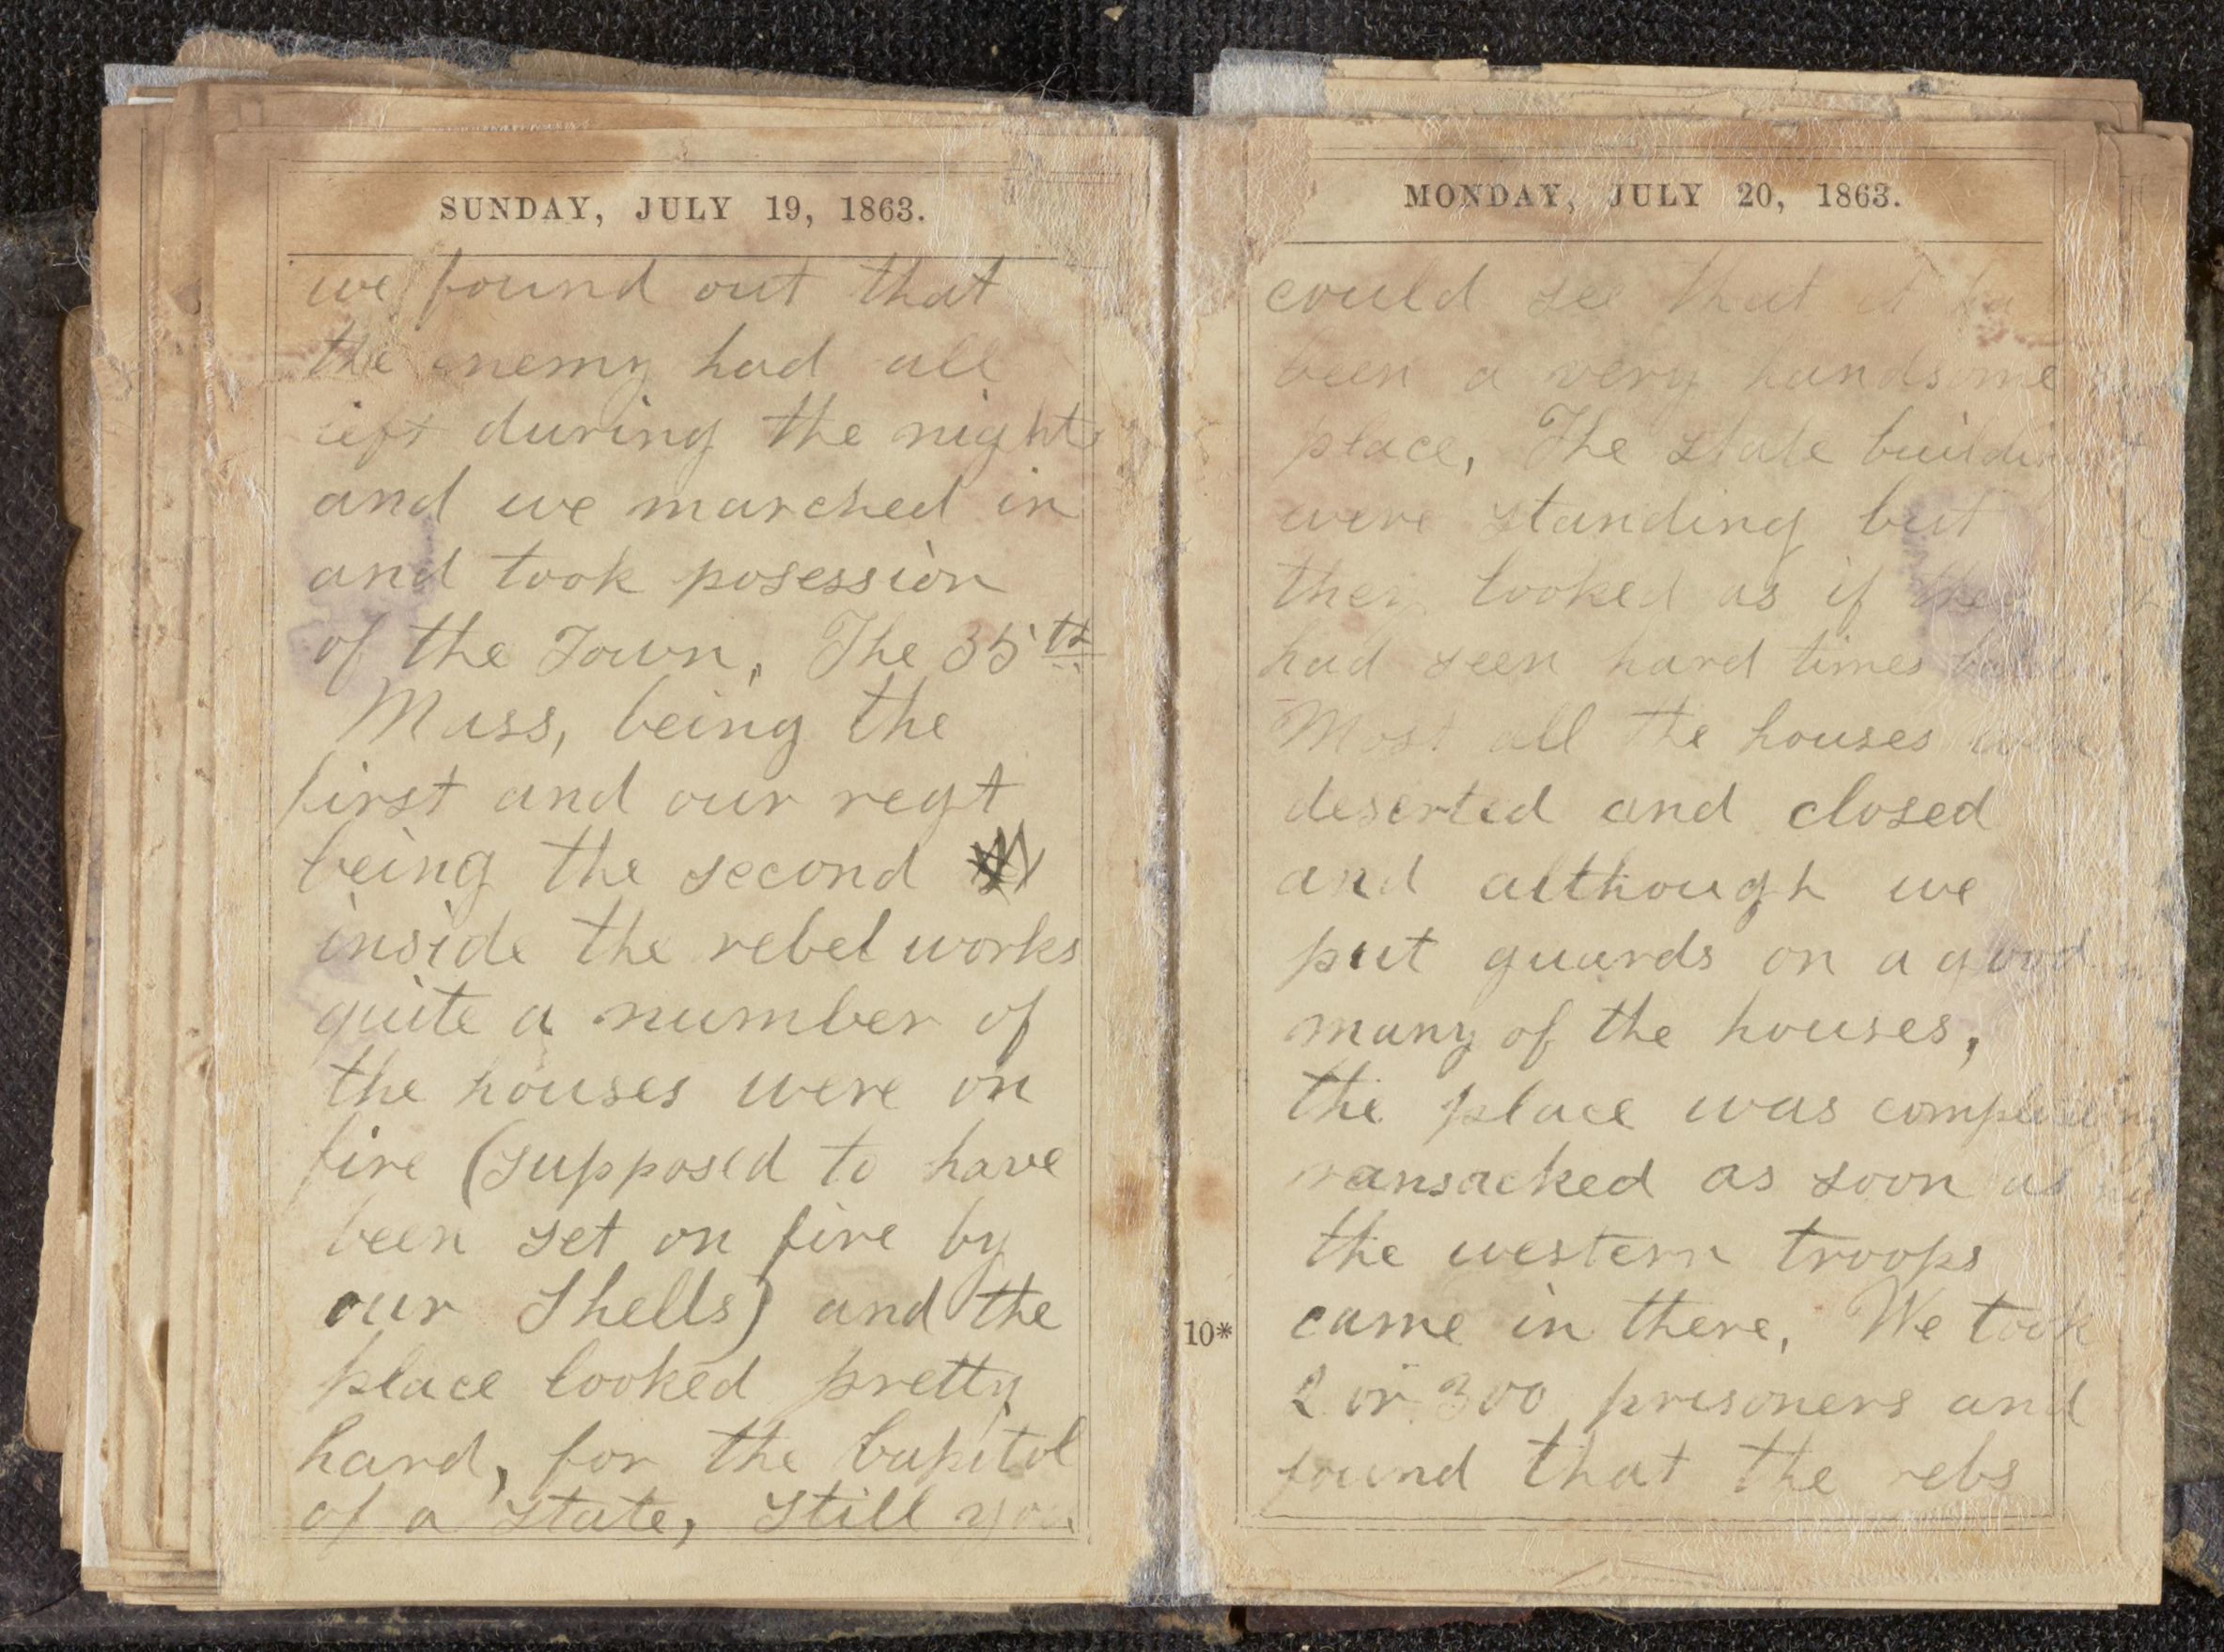 SUNDAY, JULY 19, 1863.
we found out that
the enemy had all
left during the night
and we marched in
and took posession
of the Town, The 35th
Mass, being the
first and our regt
being the second
inside the rebel works
quite a number of
the houses were on
fire (supposed to have
been set on fire by
our Shells) and the
place looked pretty
hard, for the Capitol
of a state, still you
MONDAY, JULY 20, 1863.
could see that it
been a very handsome
place, The state building
were standing but
they looked as if they
had seen hard times
Most all the houses were
deserted and closed
and although we
put guards on a good
many of the houses,
the place was
ransacked as soon as
the western troops
came in there, We took
2 or 300 prisoners and
found that the rebs
10*